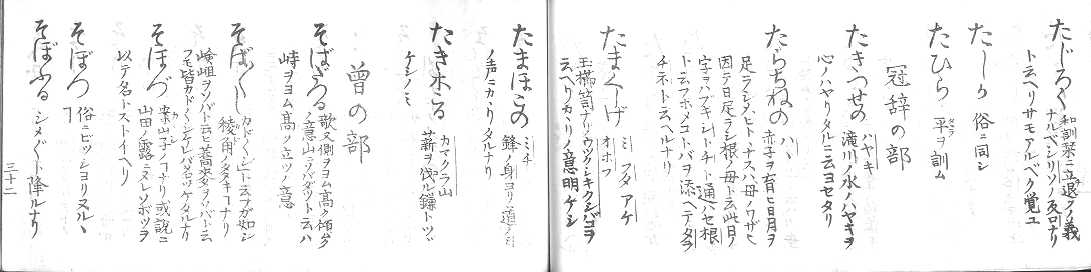 たじろく 和訓栞ニ立退クノ義
ナルベシリソノ反ロナリ
ト云ヘリサモアルベク覚ユ
たしか 俗ニ同シ
たひら 平ヲ訓ム
冠辞の部
たきつせの ハヤキ
滝川ノ水ノハヤキヲ
心ノハヤリタルニ云ヨセタリ
たらちねの ハヽ
赤子ヲ育ヒ日月ヲ
足ラシメヒトヽナスハ母ノワザ也
因テ日足ラシ根ノ母ト云此日ノ
字ヲハブキシトチト通ハセ根
ト云フホメコトバヲ添ヘテタラ
チネト云ヘルナリ
たまくしげ ミ フタ アケ
オホフ
玉櫛笥ナリウツクシキクシバコヲ
云ヘリカヽリノ意明ケシ
たまほこの ミチ
鋒ノ身ヨリ道ノミ
ノ声ニカヽリタルナリ
たき木こる カマクラ山
薪ヲ伐ル鎌トツヾ
ケシノミ
曽の部
そばだつる 歌又側ヲヨム高ク傾ク
ノ意山ニソバダツト云ハ
峙ヲヨム高ク立ツノ意
そば〳〵し カド〳〵シト云フガ如シ
稜角ノタキコヽナリ
嶮岨ヲソバト云モ蕎麦ヲソバト云
フモ皆カド〳〵シケレバ名ツケタルナリ
そほづ 案山子ノコナリ或説ニ
山田ノ露ニヌレソボツヲ
以テ名トストイヘリ
そぼつ 俗ニビッショリヌルヽ
ヿ
そぼふる シメ〴〵ト降ルナリ
三十二